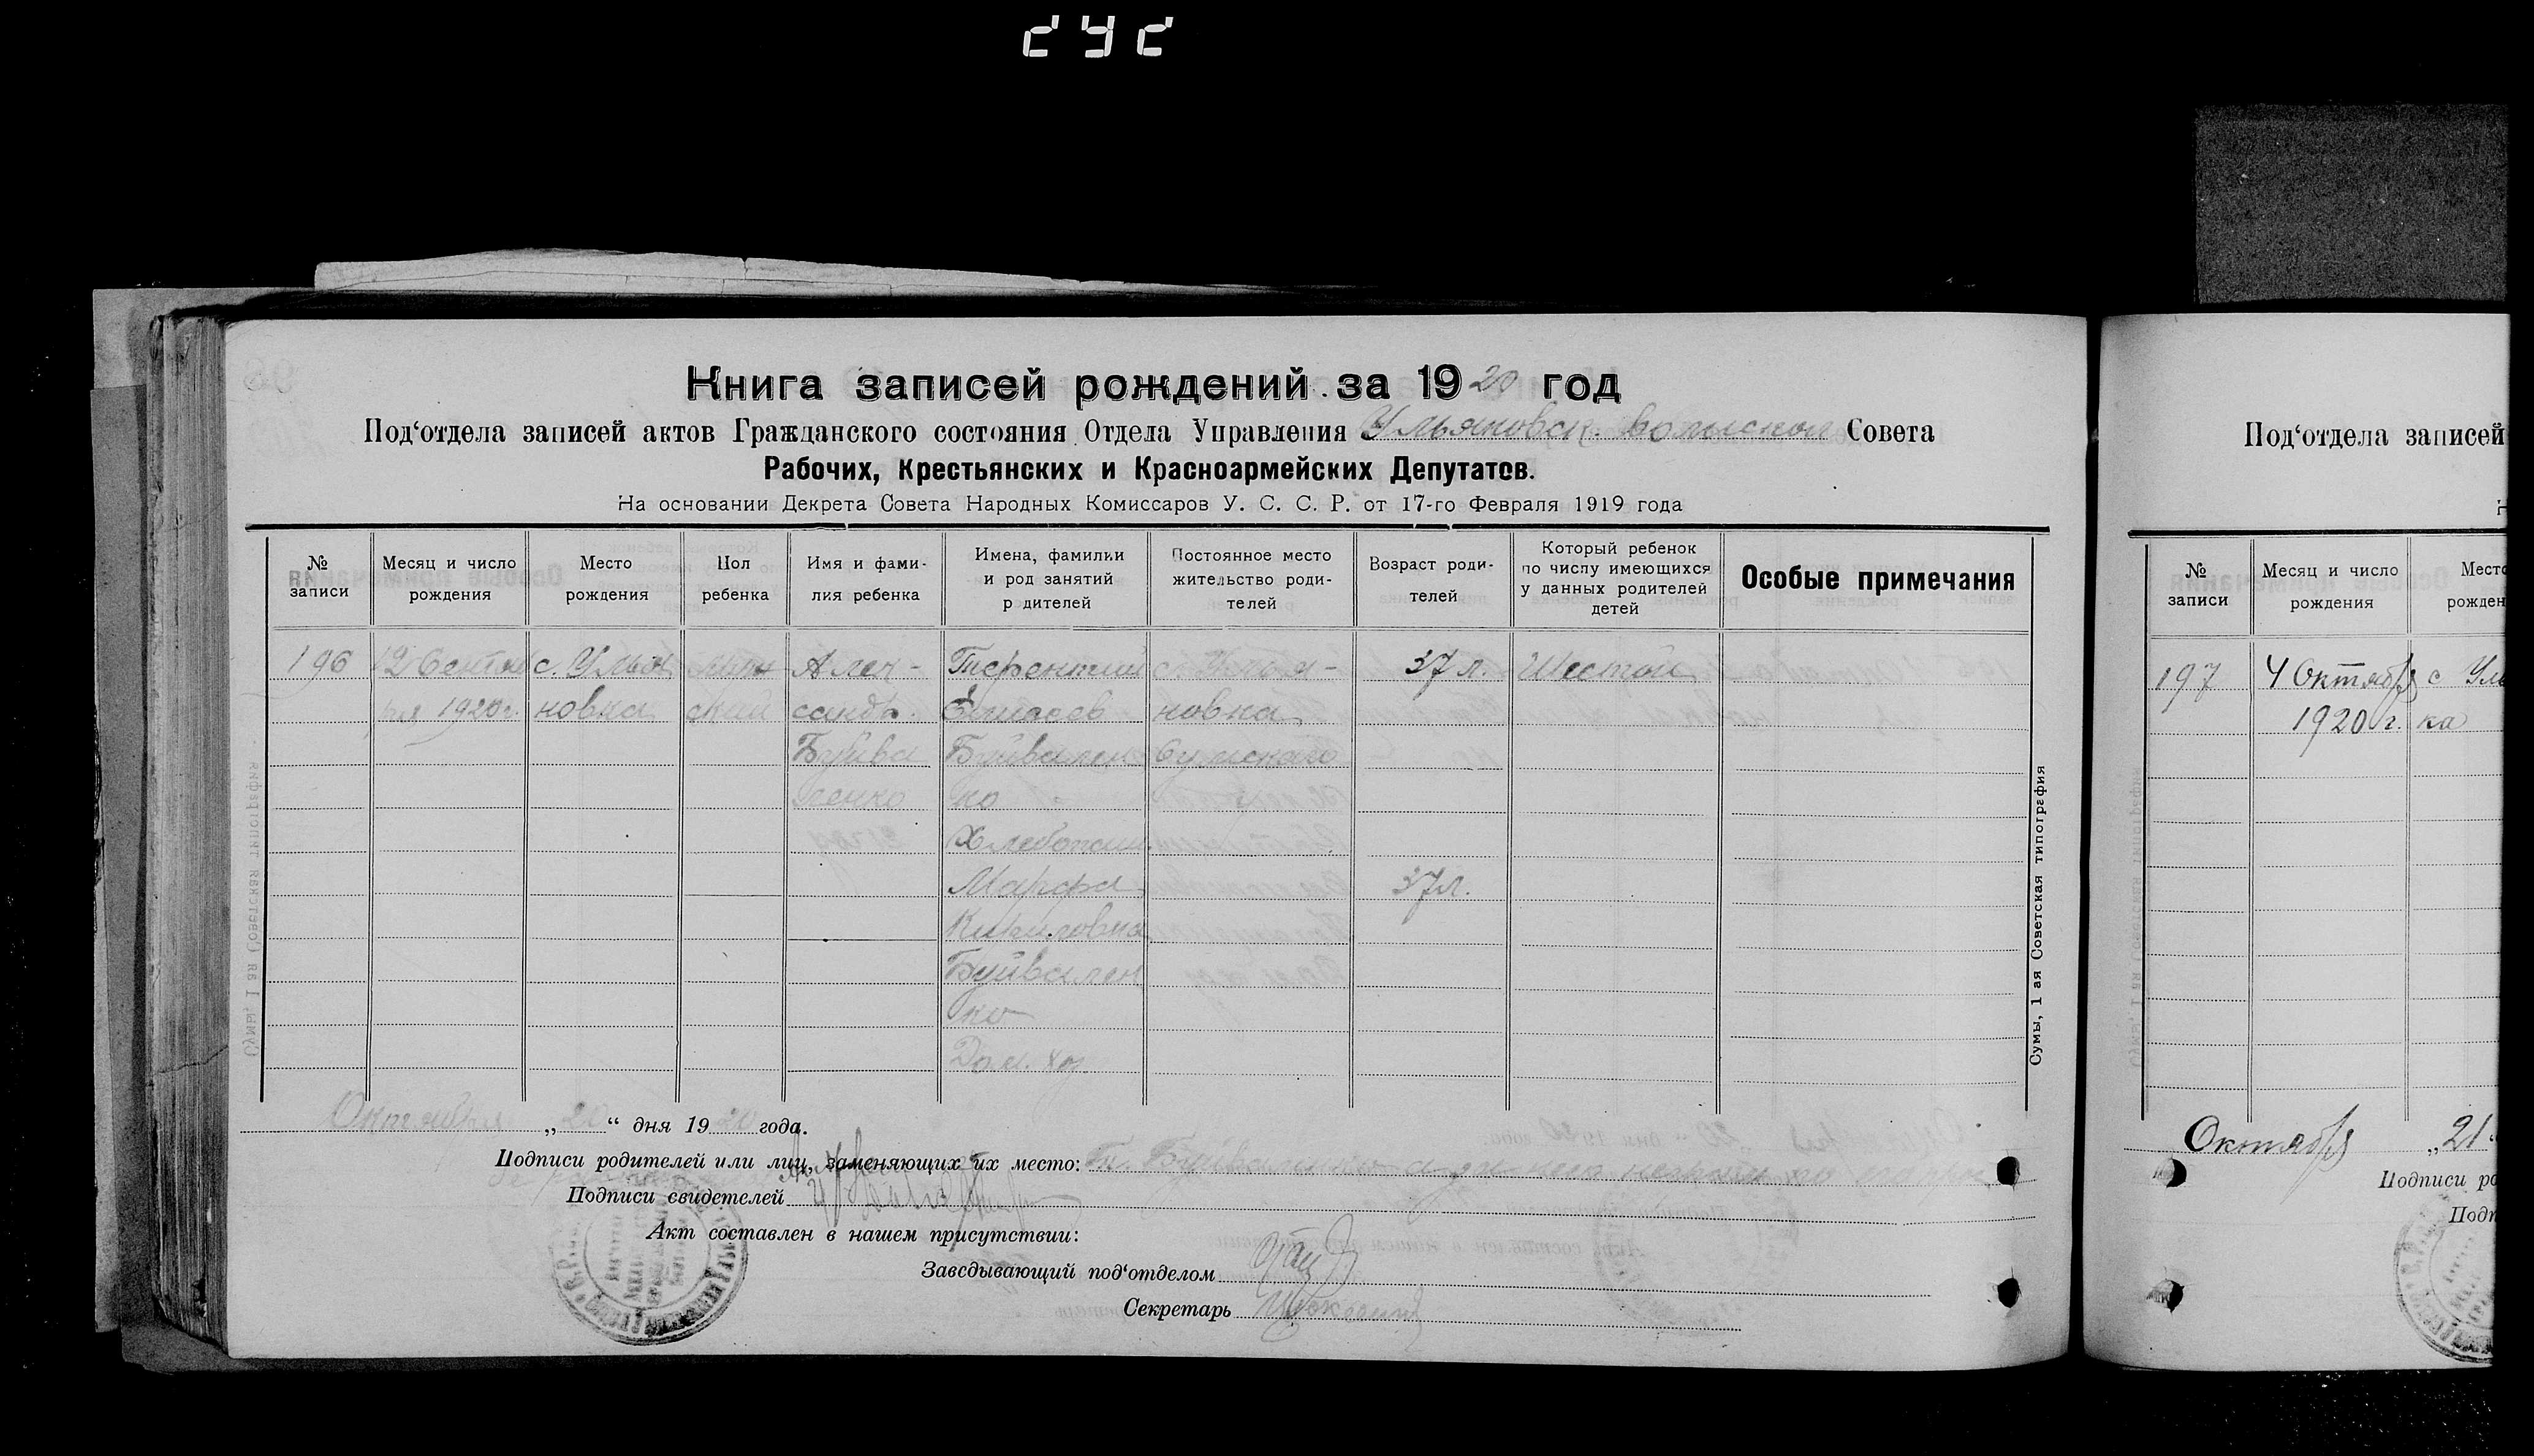 242
Книга записей рождений за 1920 год
Под‘отдела записей актов Гражданского состояния Отдела Управления Ульяновск. волыской Совета
Рабочих, Крестьянских и Красноармейских Депутатов.
На основании Декрета Совета Народных Комиссаров У. С. С. Р. от 17-го Февраля 1919 года
№ записи
Месяц и число рождения
Место рождения
Пол ребенка
Имя и фами-
лия ребенка
Имена, фамилии
и род занятий
р дителей
Постоянное место
жительство роди-
телей
Возраст роди-
телей
Который ребенок
по числу имеющихся
у данных родителей
детей
Особые примечания
196
12 Сентяб
ря 1920 г.
с. Улья
новка
ский
Алек-
сандр.
Буйва
ленко
Терентий
Буйвален
ко
Хлебопаш.
Марфа
Кириловна
Буйвален
ко
Дом. хоз.
с. Улья-
новка
Сумскаго
37 л.
37 л.
Шестой
Сумы, 1 ая Советская типография
Октября „20“ дня 1920 года.
Подписи родителей или лиц, заменяющих их место: Т. Буйваленко
Подписи свидетелей
Акт составлен в нашем присутствии:
Заведывающий под‘отделом
Секретарь
Под‘отдела записей
№ записи
Месяц и число рождения
Место
рожден
197
4 Октября
1920 г.
с Уль
ка
Октября „21“
Подписи ро
Подп